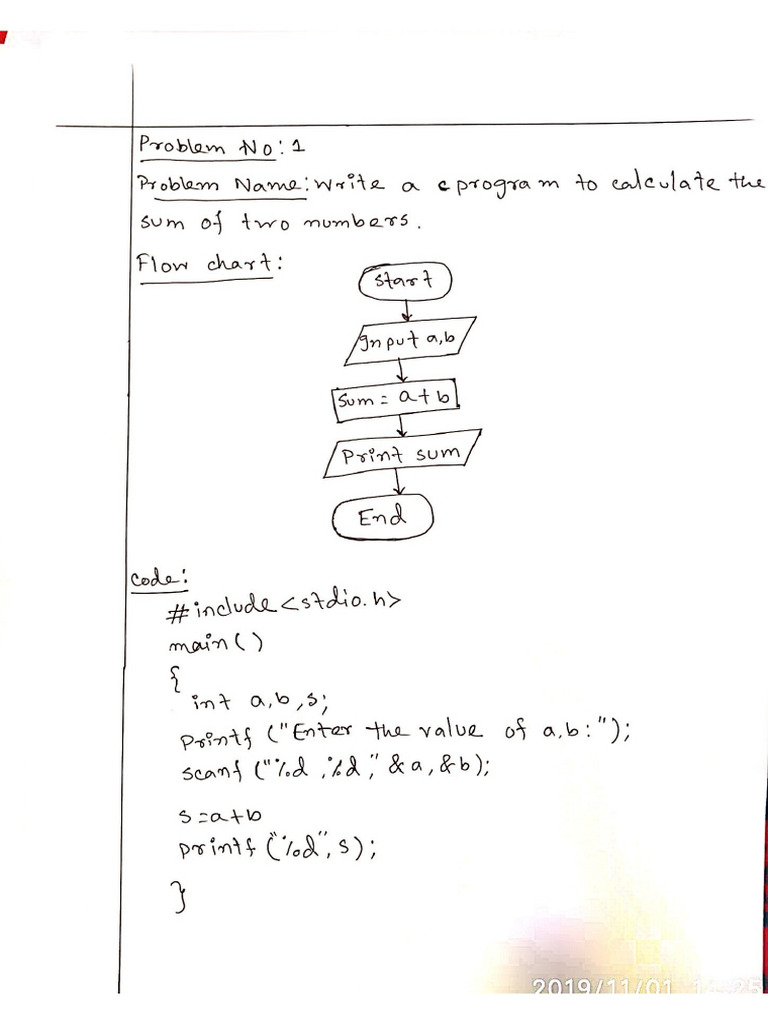 Problem No: 1
Problem Name: Write a c program to calculate the
sum of two numbers.
Flow chart:
Start
Input a,b
Sum = a+b
Print sum
End
code:
#include<stdio.h>
main()
{
int a,b,s;
Printf ("Enter the value of a,b:");
scanf ("%d,%d," &a,&b);
s=a+b
printf ("%d",s);
}
2019/11/01 14:25